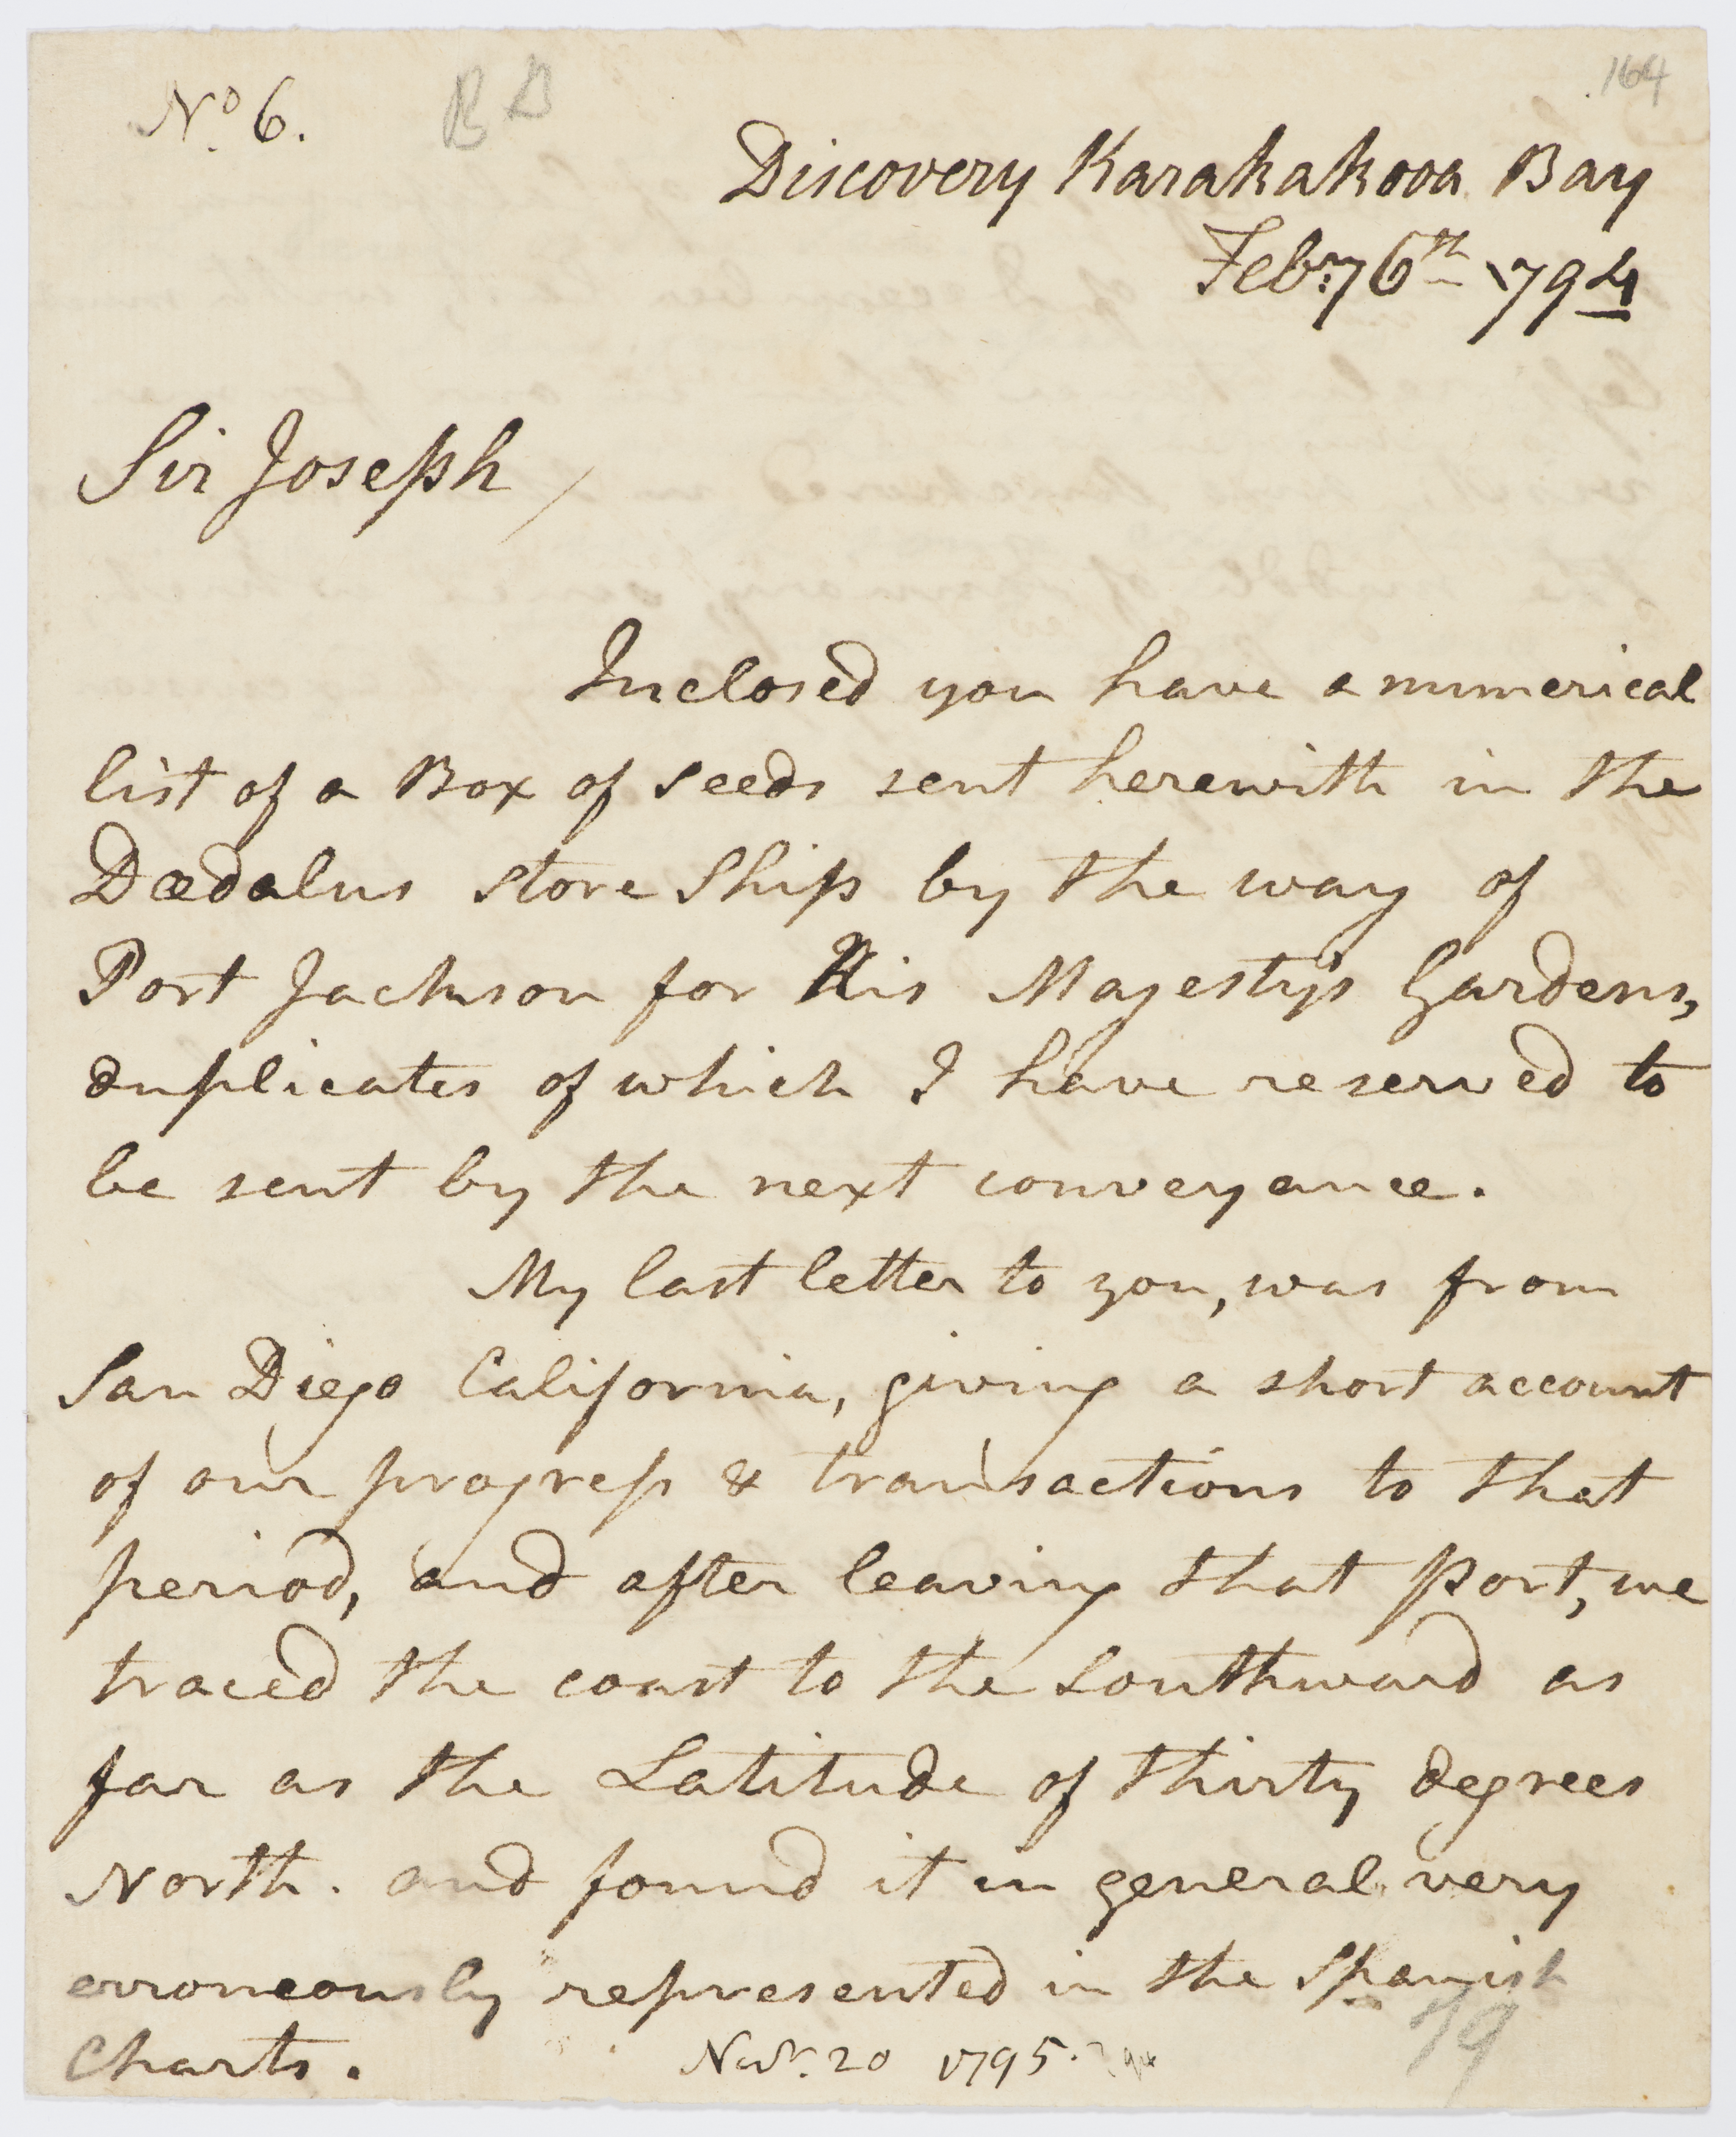 No 6.
B D
164
Discovery Karakakooa Bay
Febry 6th 1794
Sir Joseph
Inclosed you have a numerical
list of a Box of seeds sent herewith in the
Dædalus Store Ship by the way of
Port Jackson for His Majestys Gardens,
duplicates of which I have reserved to
be sent by the next conveyance.
My last letter to you, was from
San Diego California, giving a short account
of our progress & transactions to that
period, and after leaving that Port, we
traced the coast to the Southward as
far as the Latitude of thirty degrees
North. and found it in general very
erroneously represented in the Spanish
Charts.
Novr. 20 1795.
79